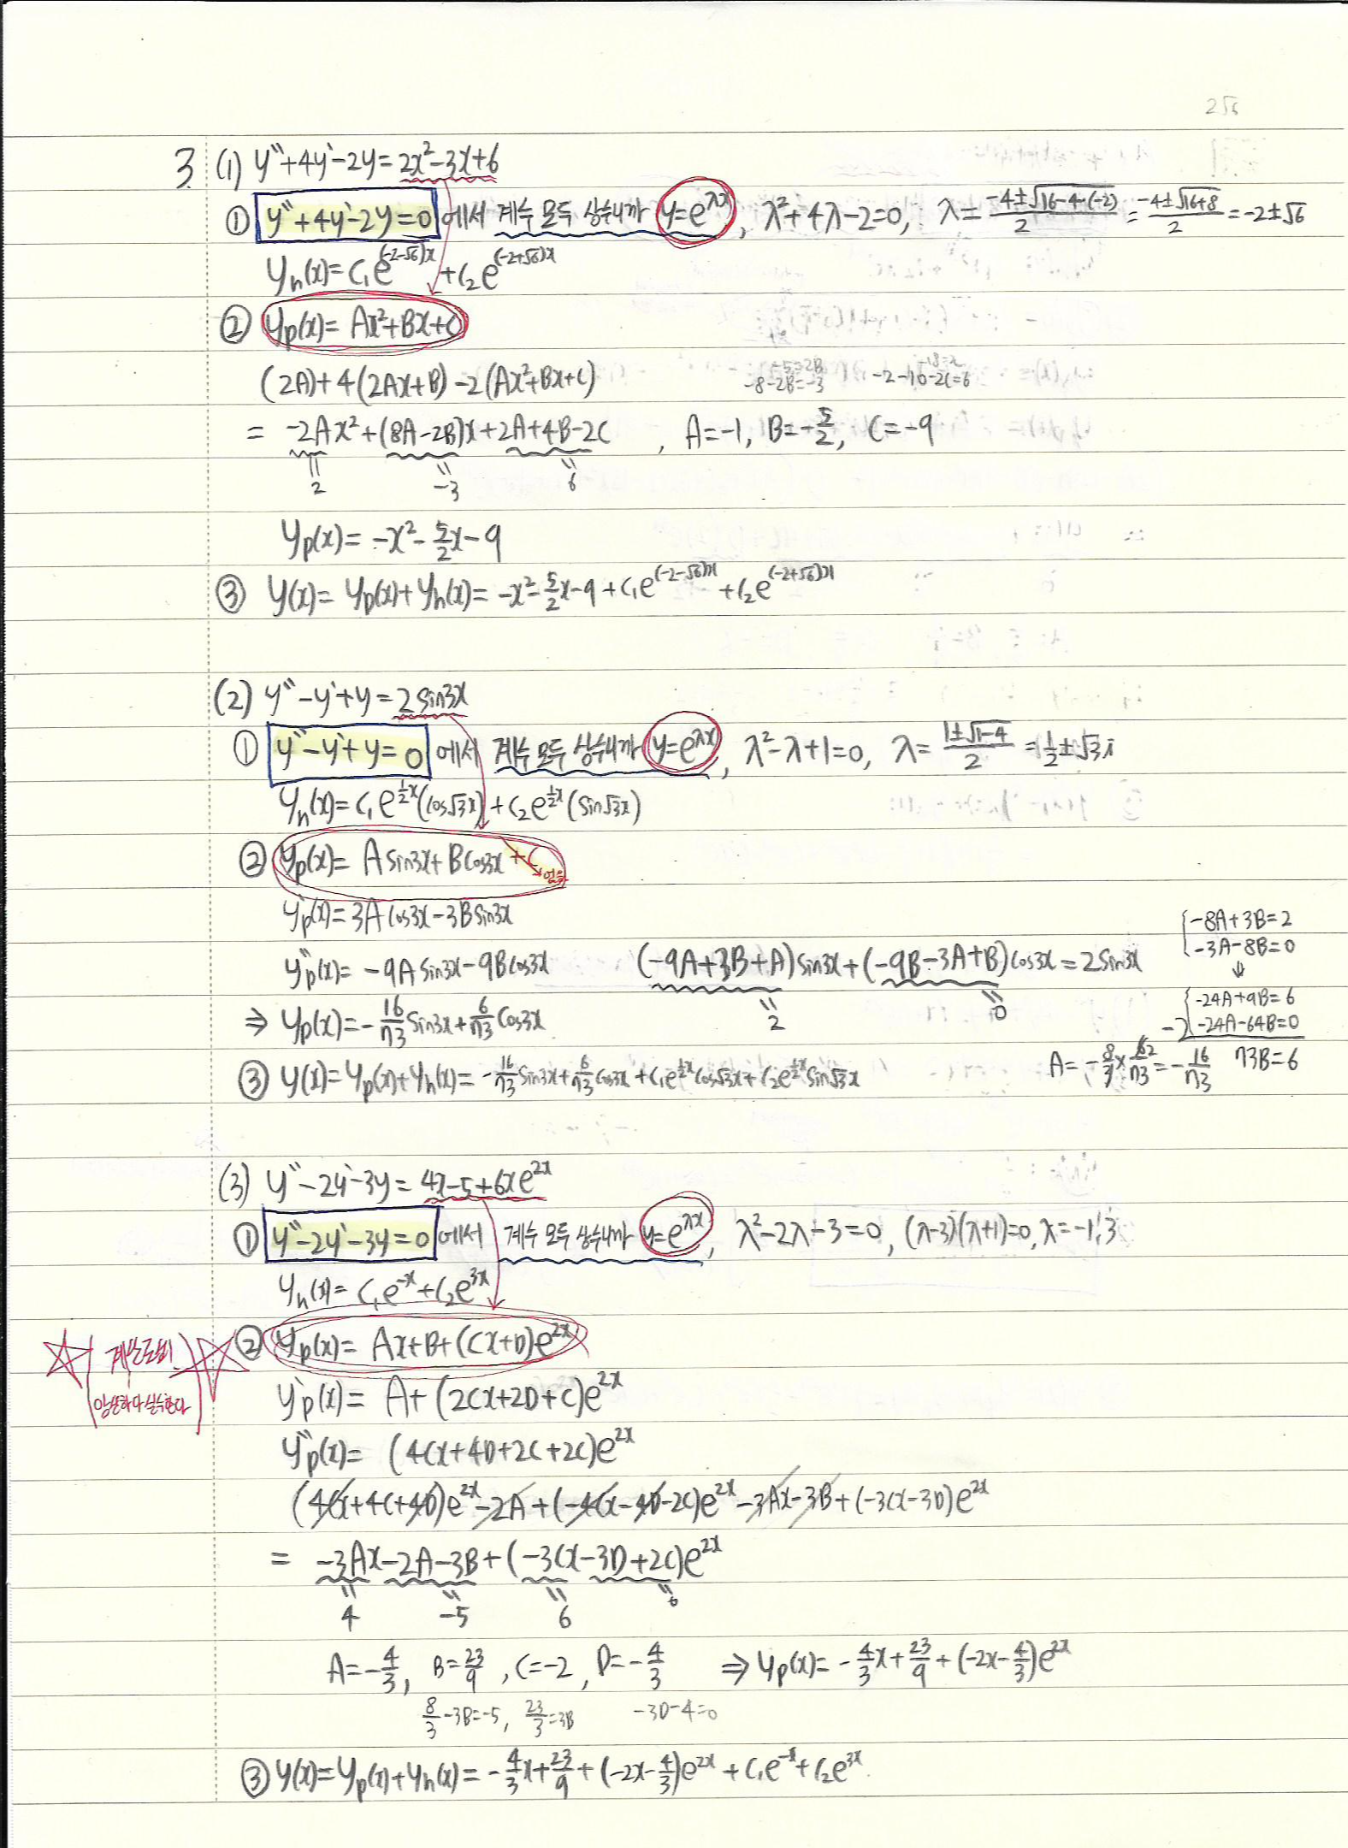 2√6
3. (1) y''+4y'-2y=2x²-3x+6
① y''+4y'-2y=0 에서 계수 모두 상수니까 y=e^{λx}, λ²+4λ-2=0, λ= (-4±√(16-4·(-2)))/2 = (-4±√(16+8))/2 = -2±√6
y_h(x)= c₁e^{(-2-√6)x} + c₂e^{(-2+√6)x}
② y_p(x)= Ax²+Bx+C
(2A)+4(2Ax+B)-2(Ax²+Bx+C)
-5=2B -18=2C
-8-2B=-3 -2-10-2C=6
= -2Ax²+(8A-2B)x+2A+4B-2C , A=-1, B=-5/2, C=-9
2 -3 6
y_p(x)= -x²-5/2x-9
③ y(x)= y_p(x)+y_h(x)= -x²-5/2x-9+c₁e^{(-2-√6)x}+c₂e^{(-2+√6)x}
(2) y''-y'+y=2sin3x
① y''-y'+y=0 에서 계수 모두 상수니까 y=e^{λx}, λ²-λ+1=0, λ= (1±√(1-4))/2 = 1/2±√3i
y_h(x)= c₁e^{1/2x}(cos√3x)+c₂e^{1/2x}(sin√3x)
② y_p(x)= Asin3x+Bcos3x+C 없음
y'p(x)=3Acos3x-3Bsin3x
y''p(x)= -9Asin3x-9Bcos3x (-9A+3B+A)sin3x+(-9B-3A+B)cos3x=2sin3x
2 0
-8A+3B=2
-3A-8B=0
↓
-24A+9B=6
-24A-64B=0
73B=6
A= -8/3×6²/73=-16/73
⇒ y_p(x)= -16/73sin3x+6/73cos3x
③ y(x)=y_p(x)+y_h(x)= -16/73sin3x+6/73cos3x+c₁e^{1/2x}cos√3x+c₂e^{1/2x}sin√3x
(3) y''-2y'-3y=4x-5+6xe^{2x}
① y''-2y'-3y=0 에서 계수 모두 상수니까 y=e^{λx}, λ²-2λ-3=0, (λ-3)(λ+1)=0, λ=-1, 3
y_h(x)= c₁e^{-x}+c₂e^{3x}
② y_p(x)= Ax+B+(Cx+D)e^{2x}
y'p(x)= A+(2Cx+2D+C)e^{2x}
y''p(x)= (4Cx+4D+2C+2C)e^{2x}
(4Cx+4C+4D)e^{2x}-2A+(-4Cx-4D-2C)e^{2x}-3Ax-3B+(-3Cx-3D)e^{2x}
= -3Ax-2A-3B+(-3Cx-3D+2C)e^{2x}
4 -5 6 0
A=-4/3, B=23/9, C=-2, D=-4/3 ⇒ y_p(x)= -4/3x+23/9+(-2x-4/3)e^{2x}
8/3-3B=-5, 23/3=3B -3D-4=0
③ y(x)=y_p(x)+y_h(x)= -4/3x+23/9+(-2x-4/3)e^{2x}+c₁e^{-x}+c₂e^{3x}